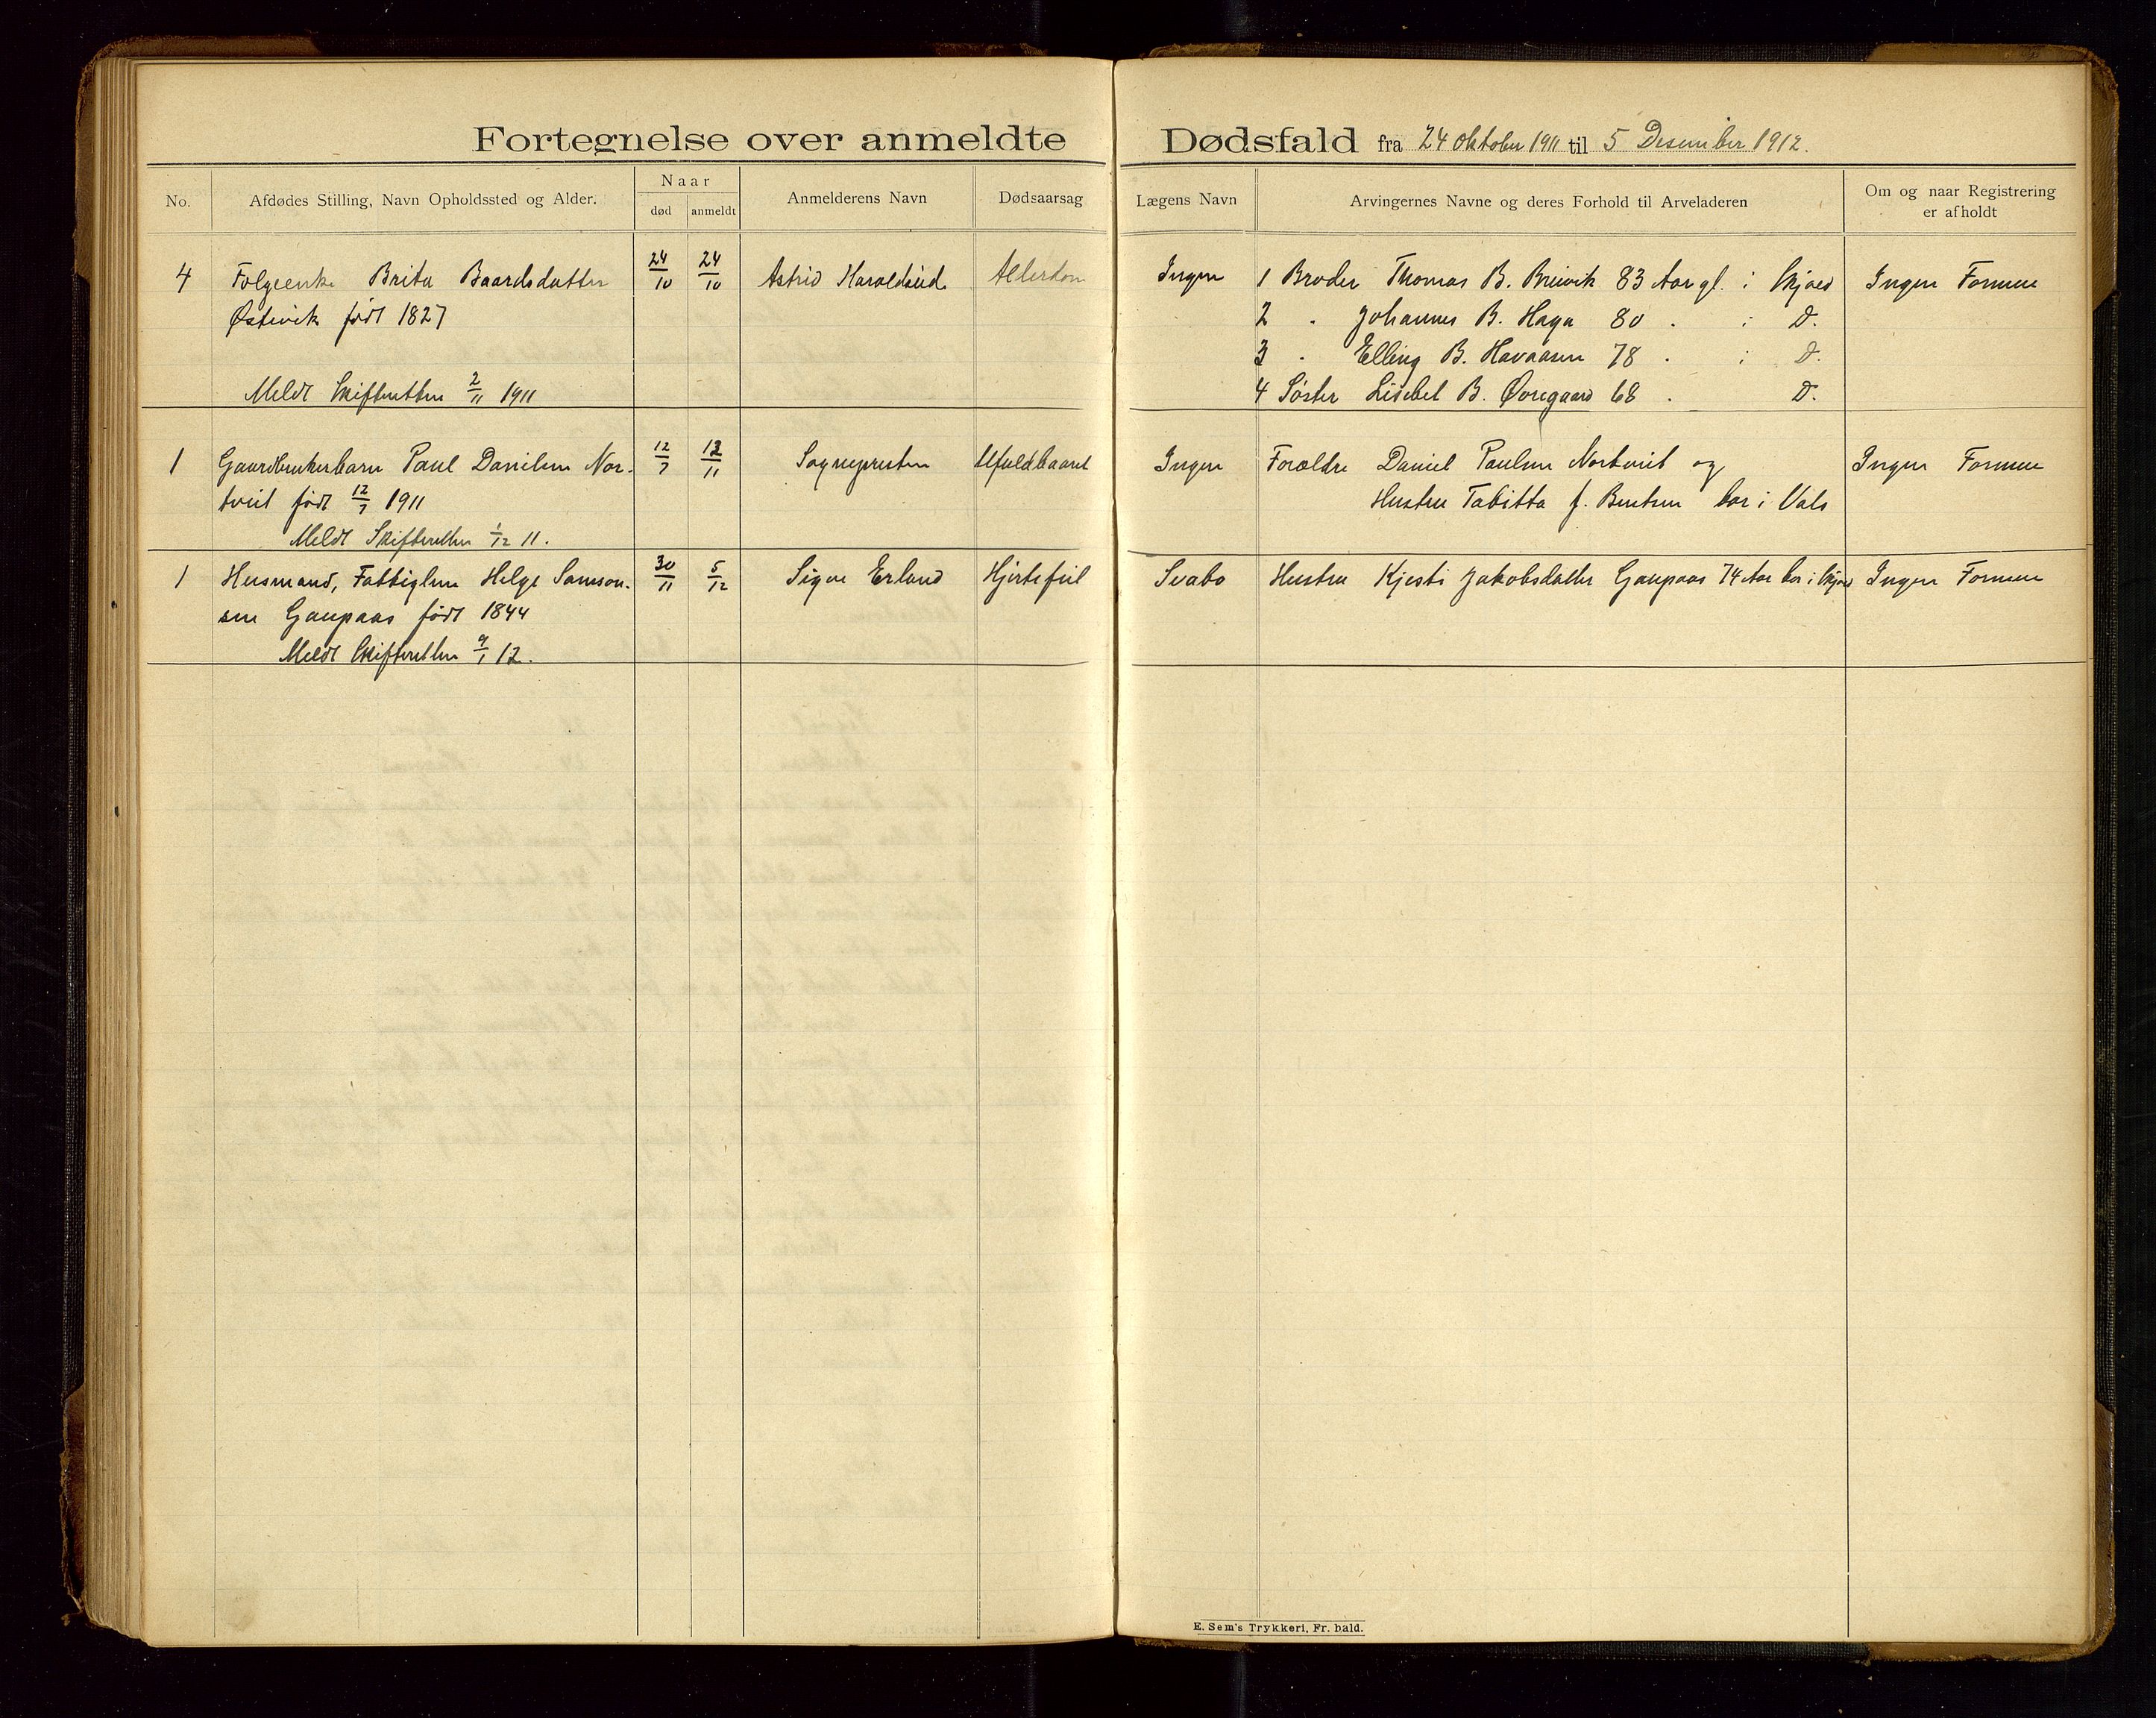 Fortegnelse over anmeldte Dødsfald fra 24 Oktober 1911 til 5 Desember 1912.
No. Afdødes Stilling, Navn Opholdssted og Alder. Naar død anmeldt Anmelderens Navn Dødsaarsag Lægens Navn Arvingernes Navne og deres Forhold til Arveladeren Om og naar Registrering er afholdt
4 Folgeenke Brita Baardsdatter 24/10 24/10 Astrid Haraldseid Alderdom Ingen 1 Broder Thomas B. Breivik 83 Aar gl. i Skjold Ingen Formue
Østevik født 1827 2 " Johannes B. Haga 80 " i D.
3 " Elling B. Havaasen 78 " i D.
Meldt Skifteretten 2/11 1911 4 Søster Lisebet B. Øvregaard 68 " D.
1 Gaardbrukerbarn Paul Danielsen Nor- 12/7 12/11 Sognepresten Ufuldbaaret Ingen Forældre Daniel Paulsen Nortveit og Ingen Formue
tveit født 12/7 1911 Hustru Tabitta f. Bentsen bor i Vats
Meldt Skifteretten 1/12 11.
1 Husmand, Fattiglem Helge Samson- 30/11 5/12 Signe Erland Hjertefeil Svabo Hustru Kjesti Jakobsdatter Gaupaas 74 Aar bor i Skjold Ingen Formue
sen Gaupaas født 1844
Meldt Skifteretten 9/1 12.
E. Sem's Trykkeri, Fr. hald.